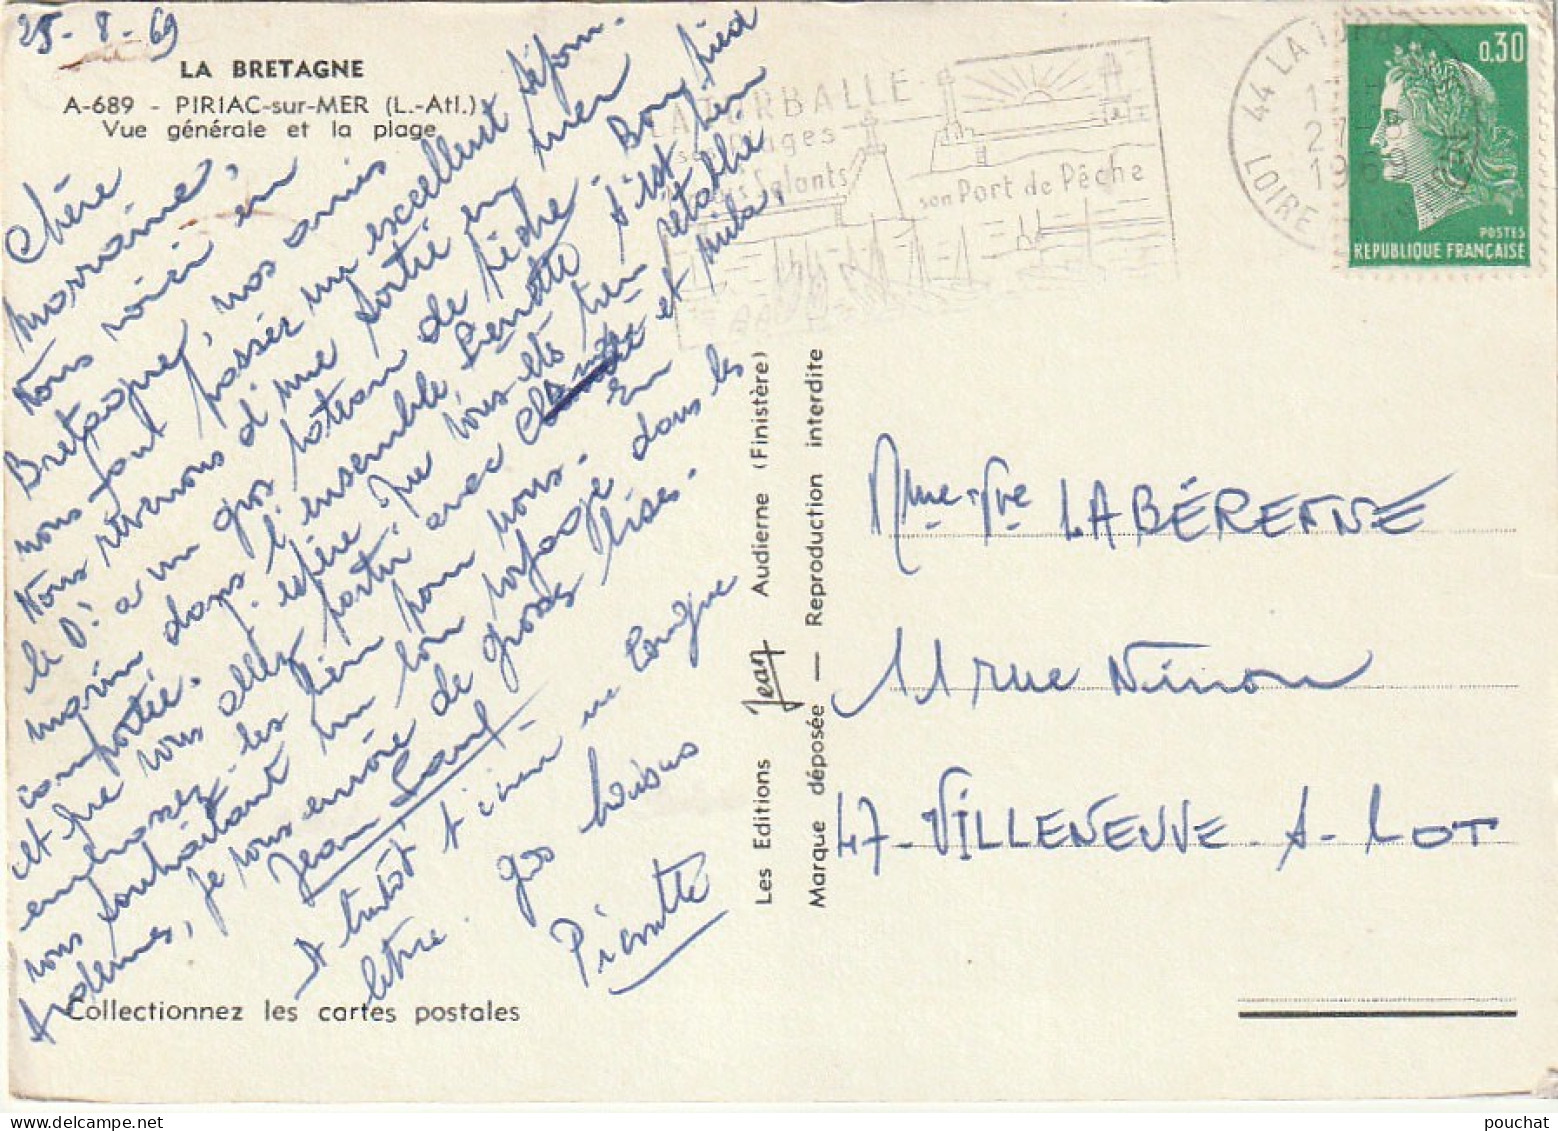 25-8-69
LA BRETAGNE
A-689 - PIRIAC-sur-MER (L.-Atl.)
Vue générale et la plage
Chère
marraine,
Nous voici en
Bretagne, nos amis
nous font passer un excellent séjour.
Nous revenons d'une sortie en mer
le D! a un gros bateau de pêche. Bon pied
marin dans l'ensemble, Pierrette s'est bien
comportée. J'espère que vous êtes bien retablie
et que vous allez partir avec et puila,
embrassez-les bien pour nous. En
vous souhaitant un bon voyage dans les
Ardennes, je vous envoie de grosses bises.
Jean Paul
A tantôt sur une longue
lettre. gros baisers
Pierrette
Collectionnez les cartes postales
Les Editions Jean Audierne (Finistère)
Marque déposée — Reproduction interdite
LA TURBALLE
ses Plages
ses Marais Salants
son Port de Pêche
44 LA TURBALLE
27-8
1969
LOIRE ATLANTIQUE
0,30
POSTES
REPUBLIQUE FRANÇAISE
Mme Vve LABÉRENNE
11 rue Ninon
47-VILLENEUVE-s-LOT
pouchat